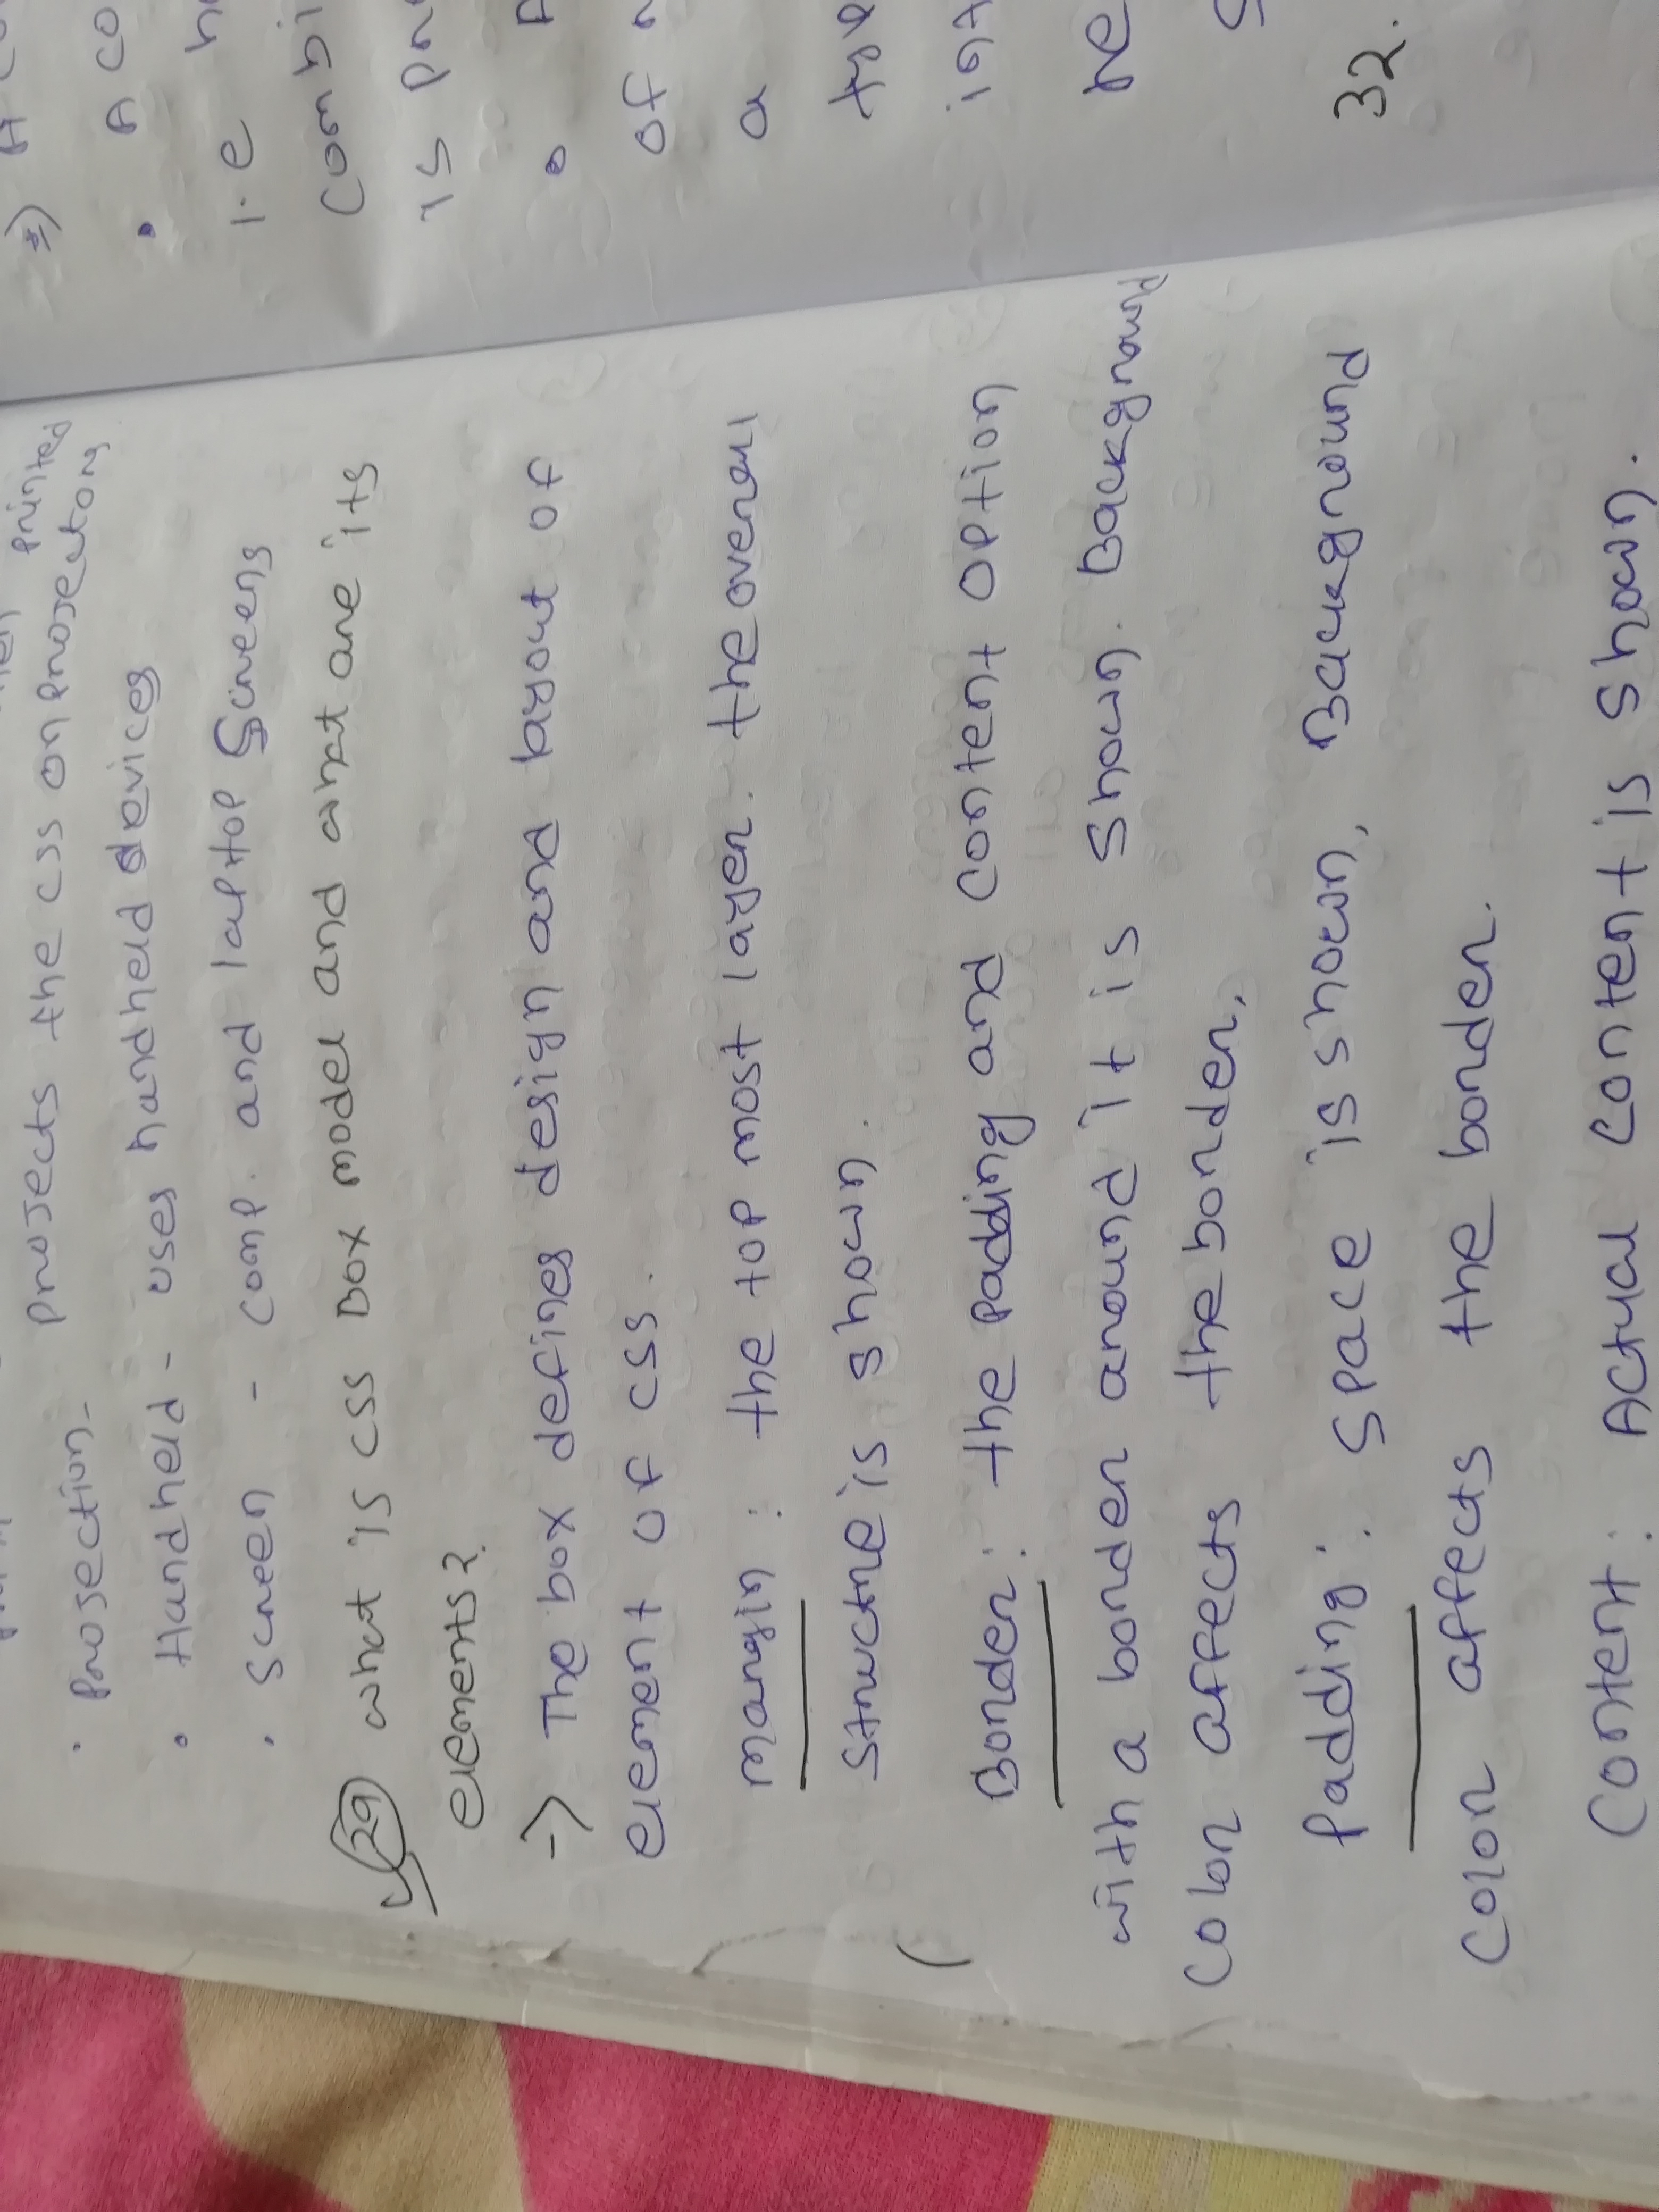 printed
• Projection - projects the css on projectors
• Handheld - uses handheld devices
• screen - comp. and laptop Screens
29 what is css Box model and what are its
elements?
-> The box defines design and layout of
element of css.
margin : the top most layer. the overall
structre is shown.
Border : the padding and content option
with a border around it is shown. Background
Color affects the border,
Padding : space is shown, Background
color affects the border.
Content : Actual content is shown.
=>) A
• A co
i.e
combi
is
of
a
32.